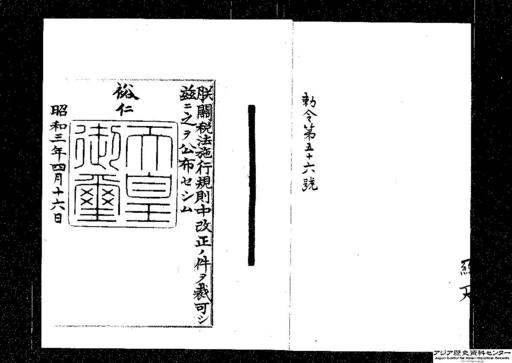 勅令第五十六號
朕關税法施行規則中改正ノ件ヲ裁可シ
茲ニ之ヲ公布セシム
裕仁
天皇
御璽
昭和三年四月十六日
アジア歴史資料センター
Japan Center for Asian Historical Records